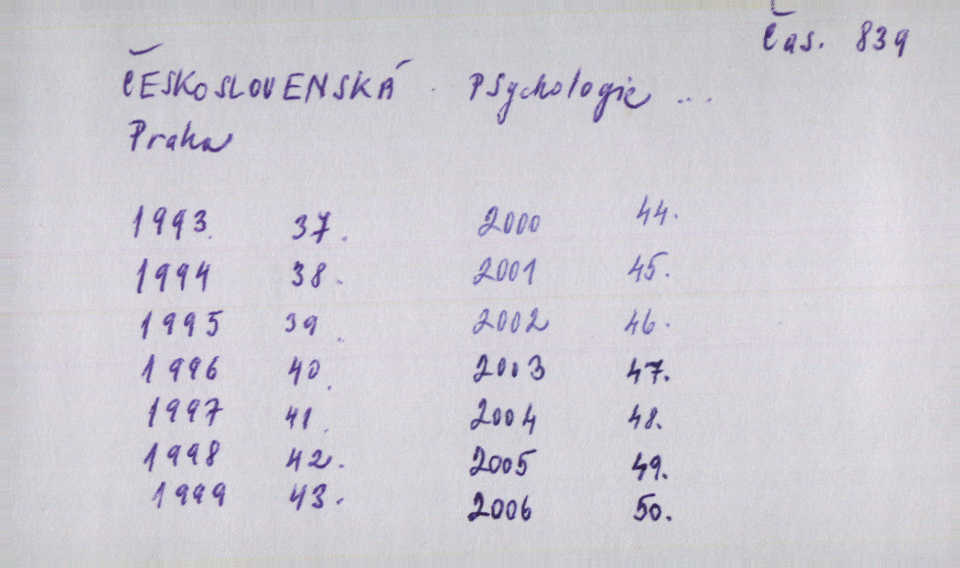 Čas. 839
ČESKOSLOVENSKÁ Psychologie ...
Praha
1993. 37. 2000 44.
1994 38. 2001 45.
1995 39. 2002 46.
1996 40. 2003 47.
1997 41. 2004 48.
1998 42. 2005 49.
1999 43. 2006 50.